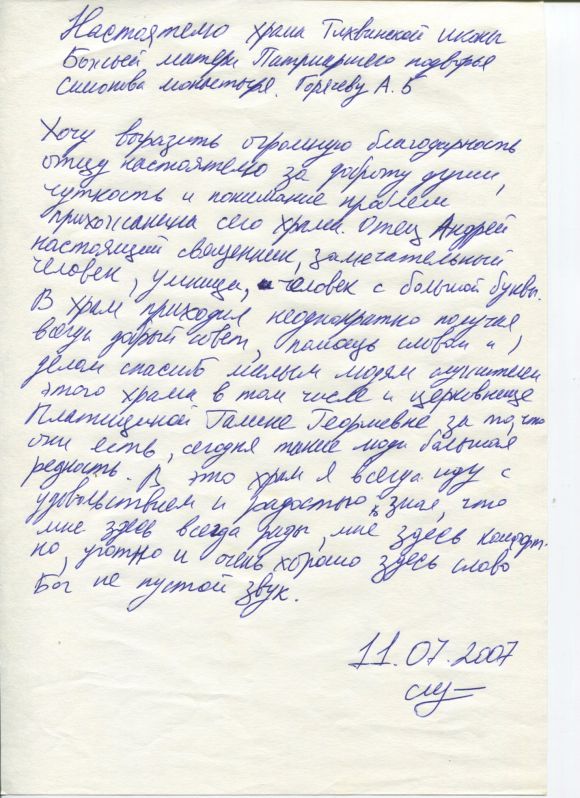 Настоятелю храма Тихвинской иконы
Божьей матери Патриаршего подворья
Симонова монастыря. Горячеву А.Б
Хочу выразить огромную благодарность
отцу настоятелю за доброту души,
чуткость и понимание проблем
прихожанина сего храма. Отец Андрей
настоящий священник, замечательный
человек, умница, человек с большой буквы.
В храм приходил неоднократно получая
всегда добрый совет, помощь словом и
делом спасибо милым людям служителям
этого храма в том числе и церковнице
Галине Георгиевне за то, что
они есть, сегодня такие люди большая
редкость. В это храм я всегда иду с
удовольствием и радостью, зная, что
мне здесь всегда рады, мне здесь комфорт-
но, уютно и очень хорошо здесь слово
Бог не пустой звук.
11.07.2007